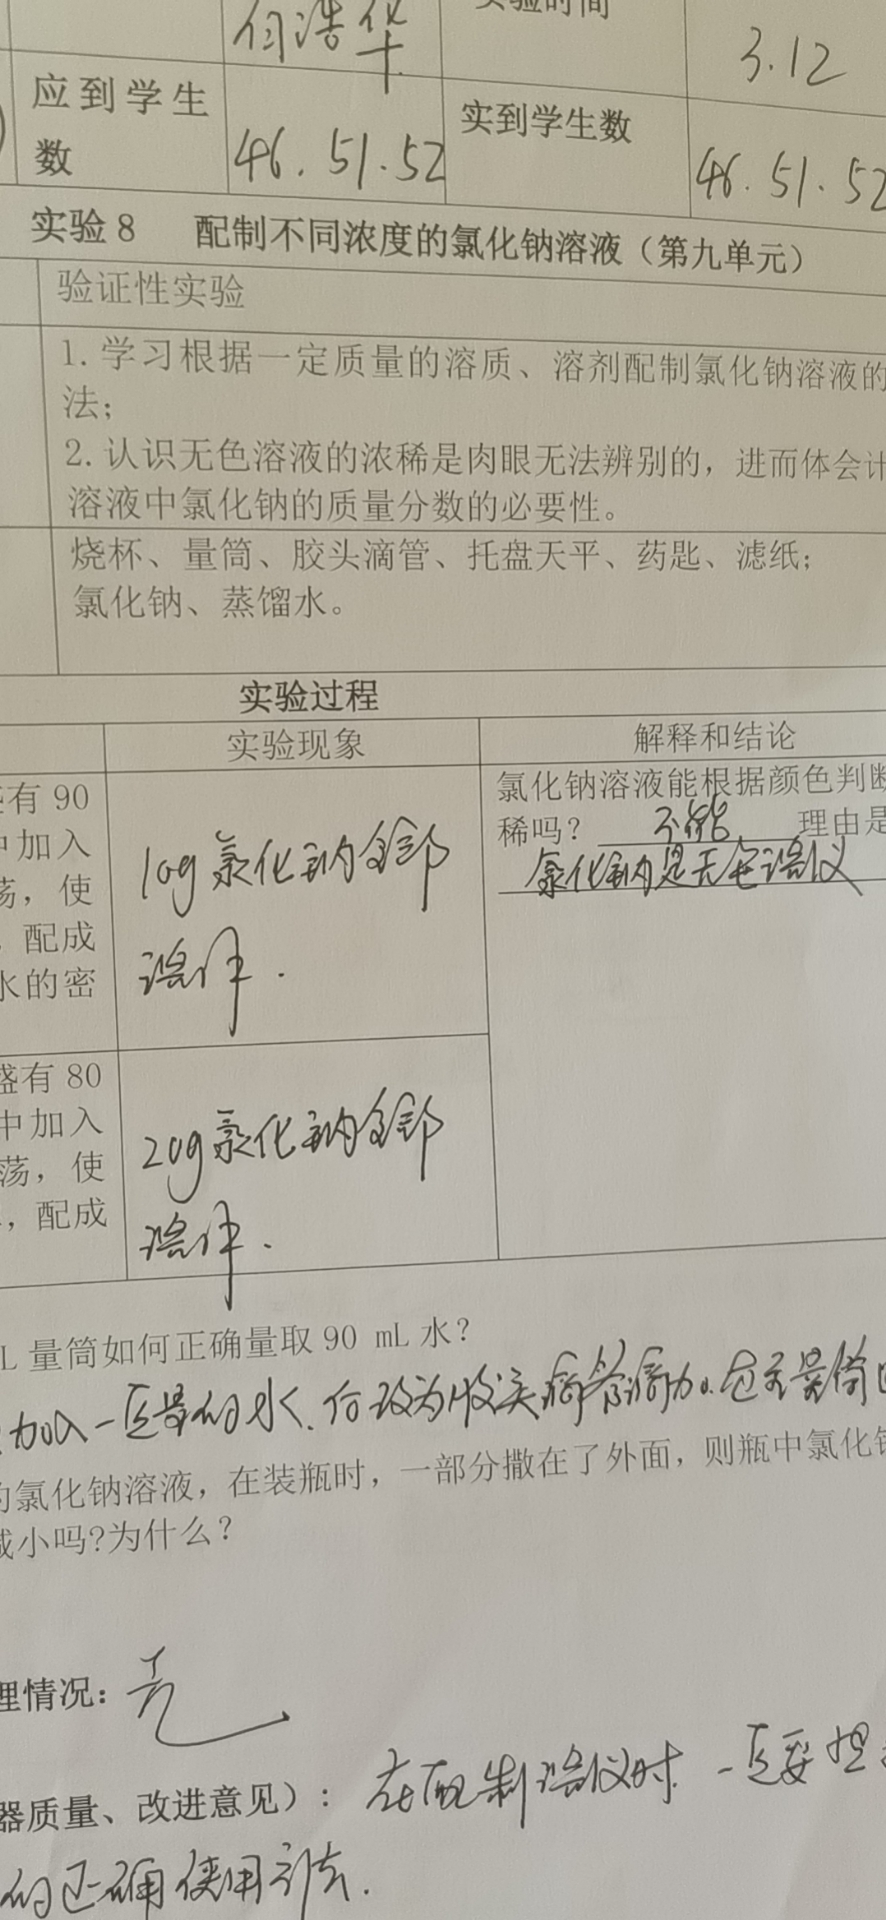 何浩华
实验时间
3.12
应到学生
数
46.51.52
实到学生数
46.51.52
实验8 配制不同浓度的氯化钠溶液（第九单元）
验证性实验
1. 学习根据一定质量的溶质、溶剂配制氯化钠溶液的
法；
2. 认识无色溶液的浓稀是肉眼无法辨别的，进而体会计
溶液中氯化钠的质量分数的必要性。
烧杯、量筒、胶头滴管、托盘天平、药匙、滤纸；
氯化钠、蒸馏水。
实验过程
实验现象
解释和结论
盛有 90
中加入
荡，使
，配成
水的密
10g氯化钠全部
溶解.
氯化钠溶液能根据颜色判断
稀吗？ 不能 理由是
氯化钠是无色溶液
盛有 80
中加入
荡，使
，配成
20g氯化钠全部
溶解.
L 量筒如何正确量取 90 mL 水？
加入一定量的水、后改为胶头滴管滴加.在量筒
的氯化钠溶液，在装瓶时，一部分撒在了外面，则瓶中氯化钠
减小吗?为什么？
理情况：无
器质量、改进意见）：在配制溶液时.一定要
的正确使用方法.